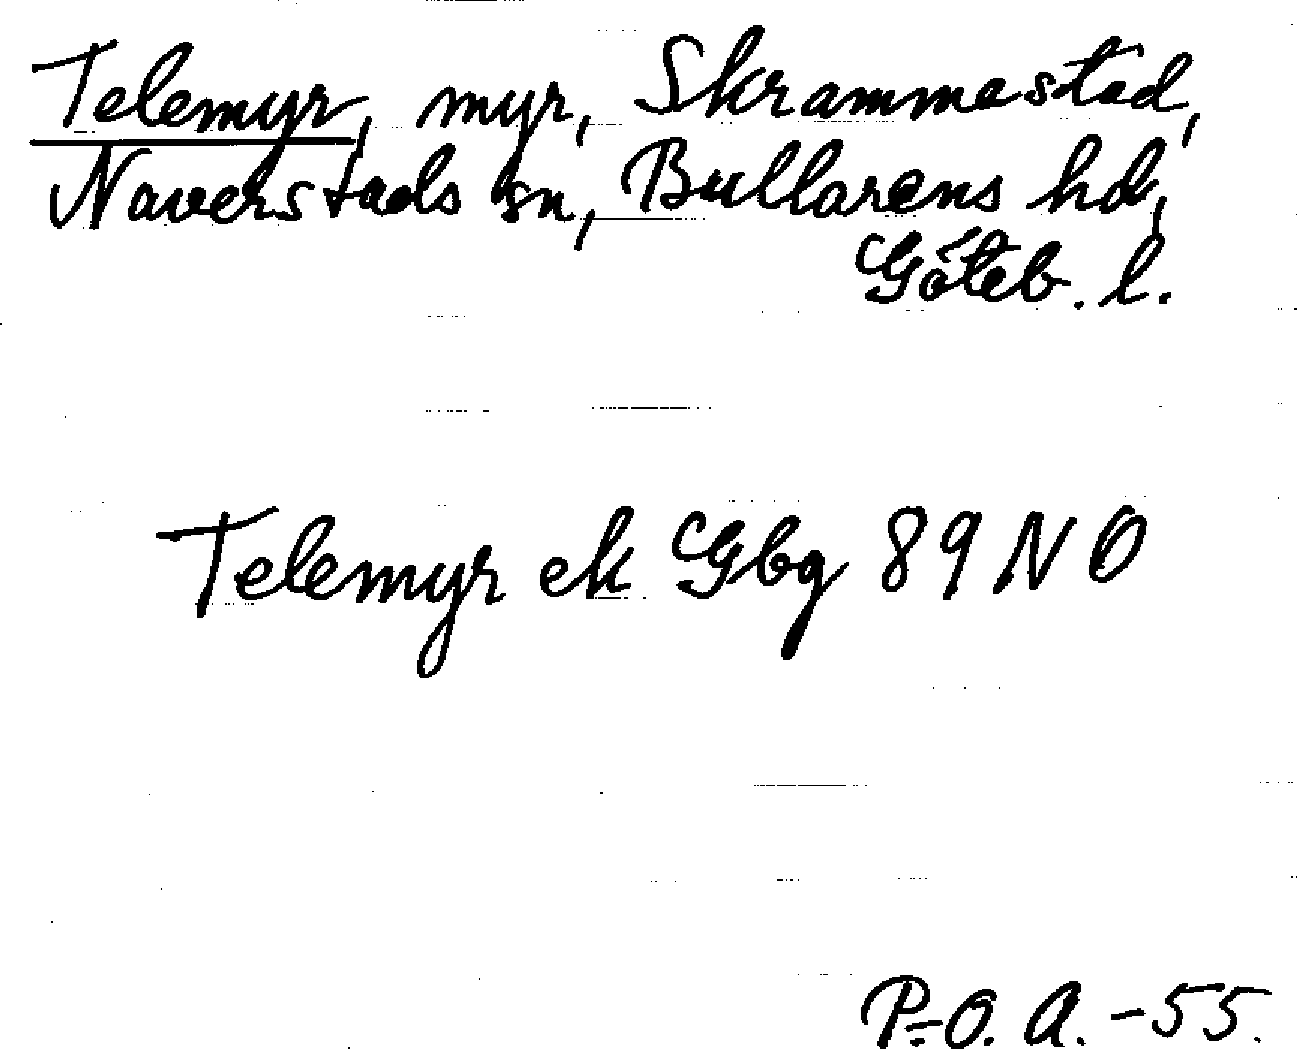 Telemyr, myr, Skrammestad,
Naverstads sn, Bullarens hd,
Göteb. l.
Telemyr ek Gbg 89 NO
P.-O. A. -55.